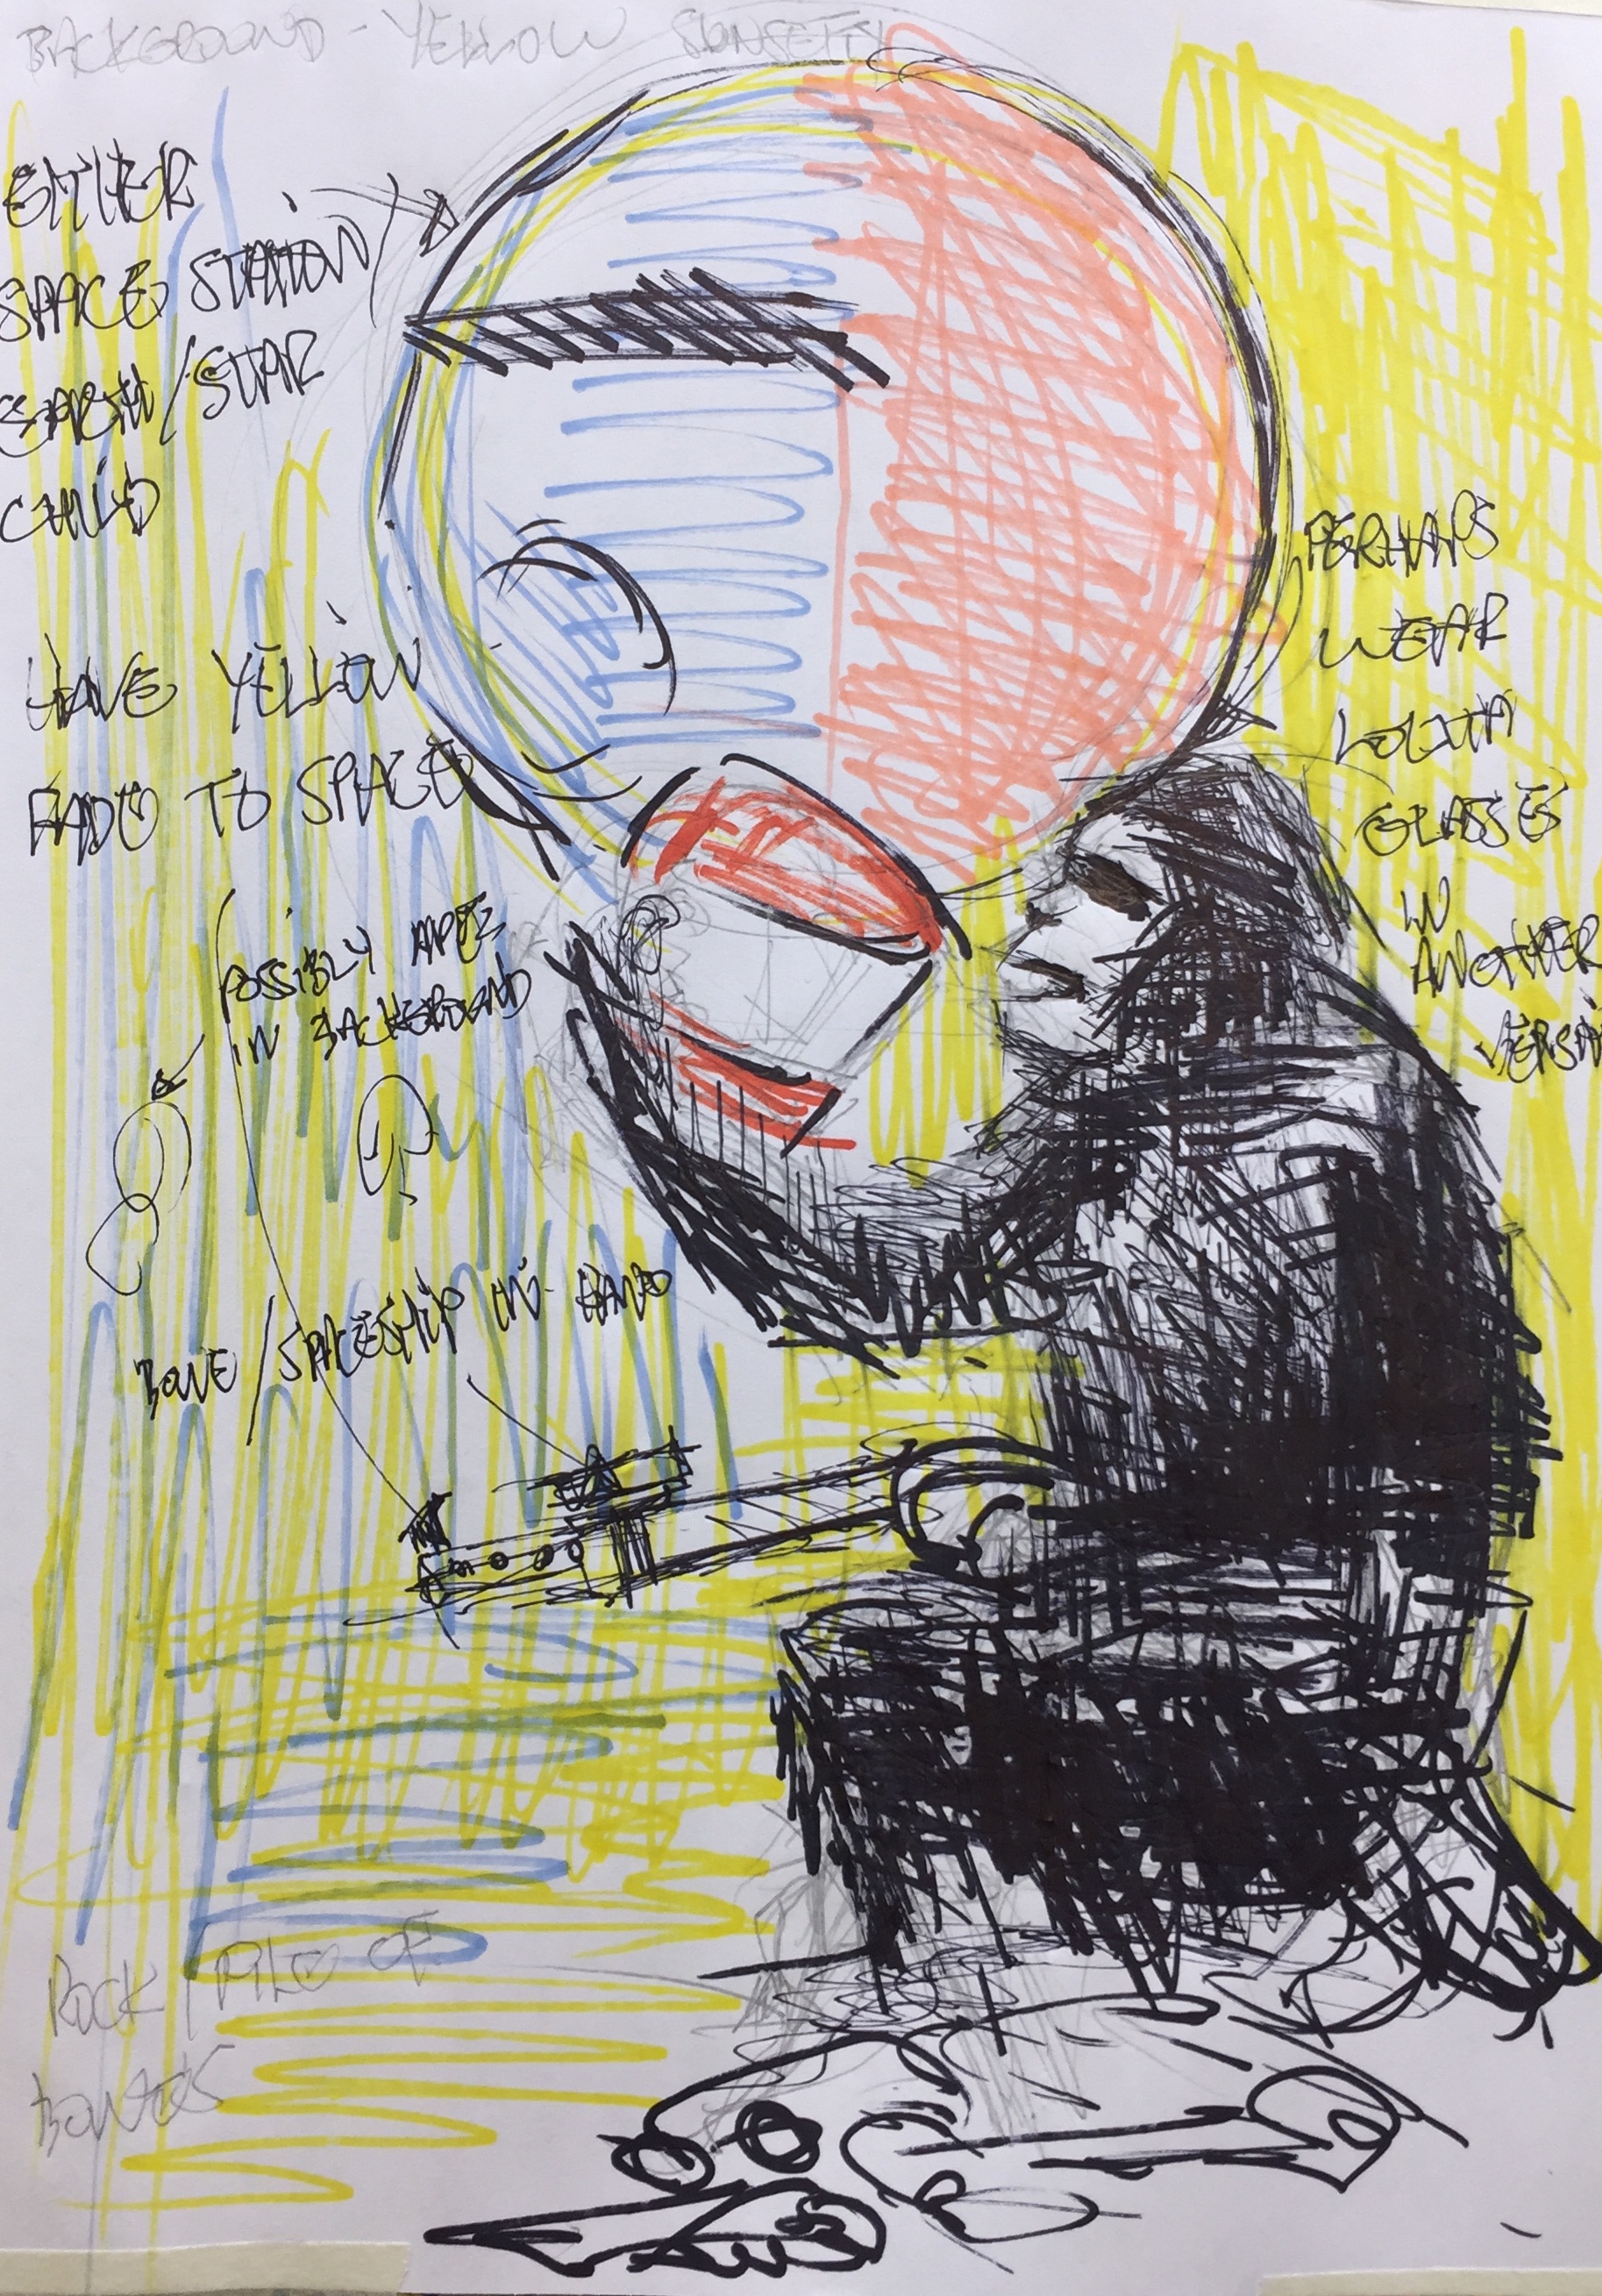 BACKGROUND - YELLOW SUNSETTY
EITHER
SPACE STATION
EARTH/STAR
CHILD
HAVE YELLOW
FADE TO SPACE
PERHAPS
WEAR
LOLITA
GLASSES
IN
ANOTHER
VERSION
POSSIBLY APES
IN BACKGROUND
BONE/SPACESHIP IN HAND
ROCK/PILE OF
BONES